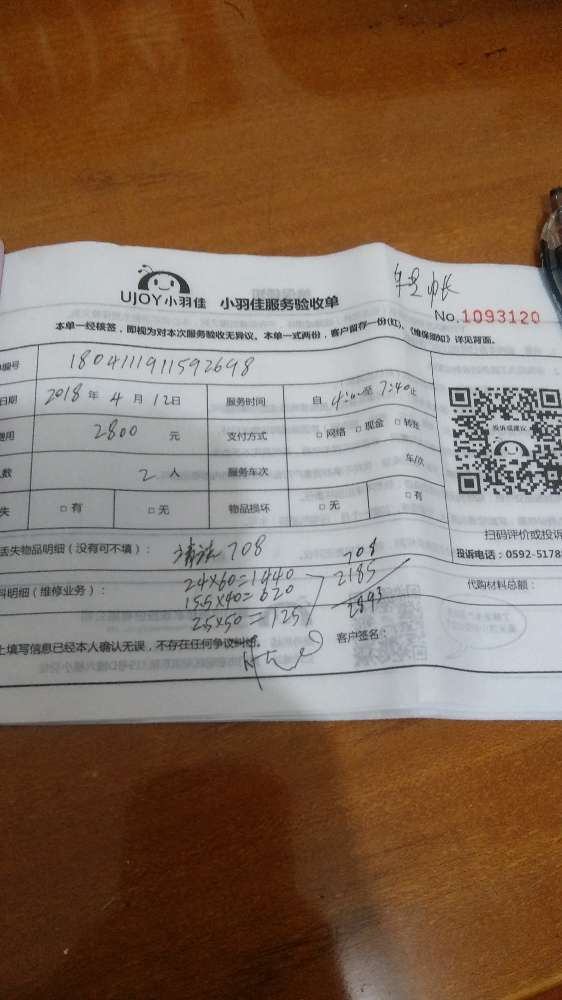 UJOY小羽佳 小羽佳服务验收单
No.1093120
本单一经核签，即视为对本次服务验收无异议。本单一式两份，客户留存一份(红)、《维保须知》详见背面。
编号 1804111911592698
日期 2018 年 4 月 12日 服务时间 自 4:00至 7:40止
费用 2800 元 支付方式 □ 网络 □ 现金 □ 转账
人数 2 人 服务车次 车/次
失 □ 有 □ 无 物品损坏 □ 无 □ 有
投诉或建议
扫码评价或投诉
投诉电话：0592-5178
丢失物品明细（没有可不填）： 清洗 708
料明细（维修业务）： 24×60=1440
15.5×40=620
2.5×50=125
708
2185
2893
代购材料总额：
上填写信息已经本人确认无误，不存在任何争议纠纷。 客户签名：